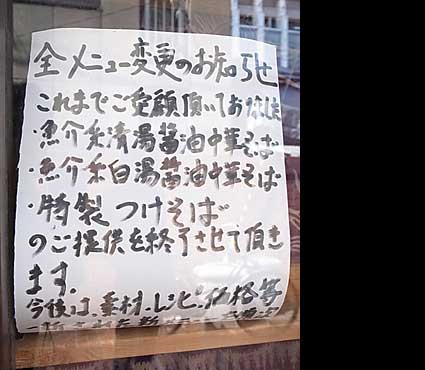 全メニュー変更のお知らせ
これまでご愛顧頂いておりました
・魚介系清湯醤油中華そば
・魚介系白湯醤油中華そば
・特製つけそば
のご提供を終了させて頂き
ます.
今後は、素材、レシピ、価格等